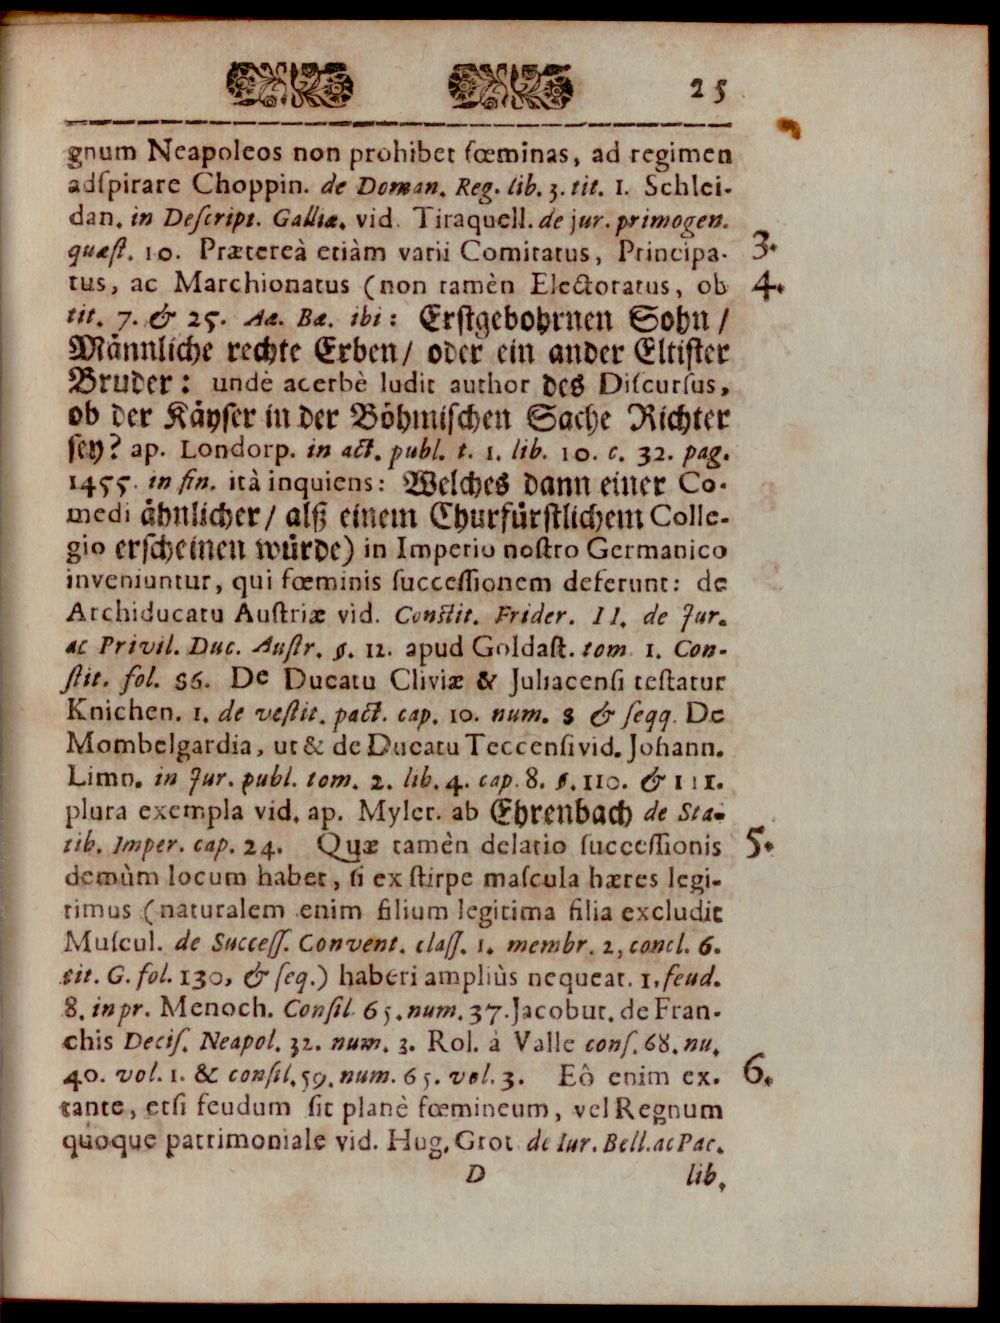 25
gnum Neapoleos non prohibet fœminas, ad regimen
adſpirare Choppin. de Doman. Reg. lib. 3. tit. 1. Schlei-
dan. in Deſcript. Galliæ. vid. Tiraquell. de jur. primogen.
quæſt. 10. Prætereà etiàm varii Comitatus, Principa- 3.
tus, ac Marchionatus (non tamèn Electoratus, ob 4.
tit. 7. & 25. Aa. Ba. ibi: Erſtgebohrnen Sohn /
Männliche rechte Erben / oder ein ander Eltiſter
Bruder: undè acerbè ludit author des Diſcurſus,
ob der Käyſer in der Böhmiſchen Sache Richter
ſey? ap. Londorp. in act. publ. t. 1. lib. 10. c. 32. pag.
1455. in fin. ità inquiens: Welches dann einer Co-
medi ähnlicher / alß einem Churfürſtlichem Colle-
gio erſcheinen würde) in Imperio noſtro Germanico
inveniuntur, qui fœminis ſucceſſionem deferunt: de
Archiducatu Auſtriæ vid. Conſtit. Frider. II. de Jur.
ac Privil. Duc. Auſtr. §. 12. apud Goldaſt. tom. 1. Con-
ſtit. fol. 86. De Ducatu Cliviæ & Juliacenſi teſtatur
Knichen. 1. de veſtit. pact. cap. 10. num. 8 & ſeqq. De
Mombelgardia, ut & de Ducatu Teccenſi vid. Johann.
Limn. in Jur. publ. tom. 2. lib. 4. cap. 8. §. 110. & 111.
plura exempla vid. ap. Myler. ab Ehrenbach de Sta-
tib. Imper. cap. 24. Quæ tamèn delatio ſucceſſionis 5.
demùm locum habet, ſi ex ſtirpe maſcula hæres legi-
timus (naturalem enim filium legitima filia excludit
Muſcul. de Succeſſ. Convent. claſſ. 1. membr. 2, concl. 6.
tit. G. fol. 130, & ſeq.) haberi ampliùs nequeat. 1. feud.
8. in pr. Menoch. Conſil. 65. num. 37. Jacobut. de Fran-
chis Deciſ. Neapol. 32. num. 3. Rol. à Valle conſ. 68. nu.
40. vol. 1. & conſil. 59. num. 65. vol. 3. Eô enim ex- 6.
tante, etſi feudum ſit planè fœmineum, vel Regnum
quoque patrimoniale vid. Hug. Grot de Iur. Bell. ac Pac.
D lib.